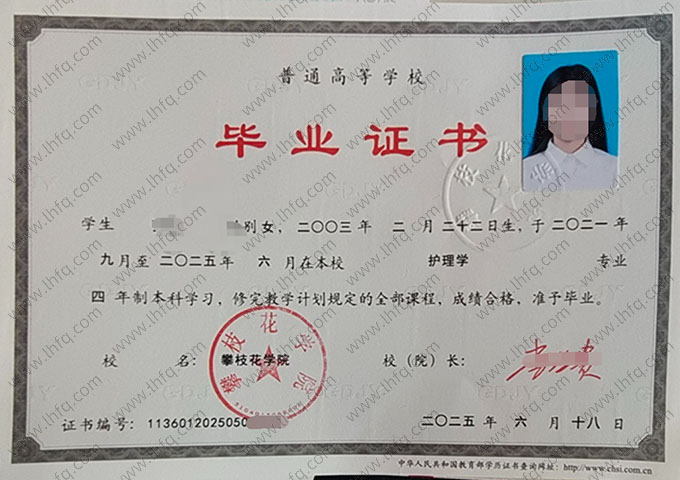 普通高等学校
毕业证书
学生 别女,二〇〇三年 二 月二十二日生,于二〇二一年
九月至二〇二五年 六 月在本校 护理学 专业
四 年制本科学习,修完教学计划规定的全部课程,成绩合格,准予毕业。
校 名:攀枝花学院 校(院)长:
攀枝花学院
证书编号:1136012025050 二〇二五年 六 月 十八 日
中华人民共和国教育部学历证书查询网址:http://www.chsi.com.cn
www.lhfq.com